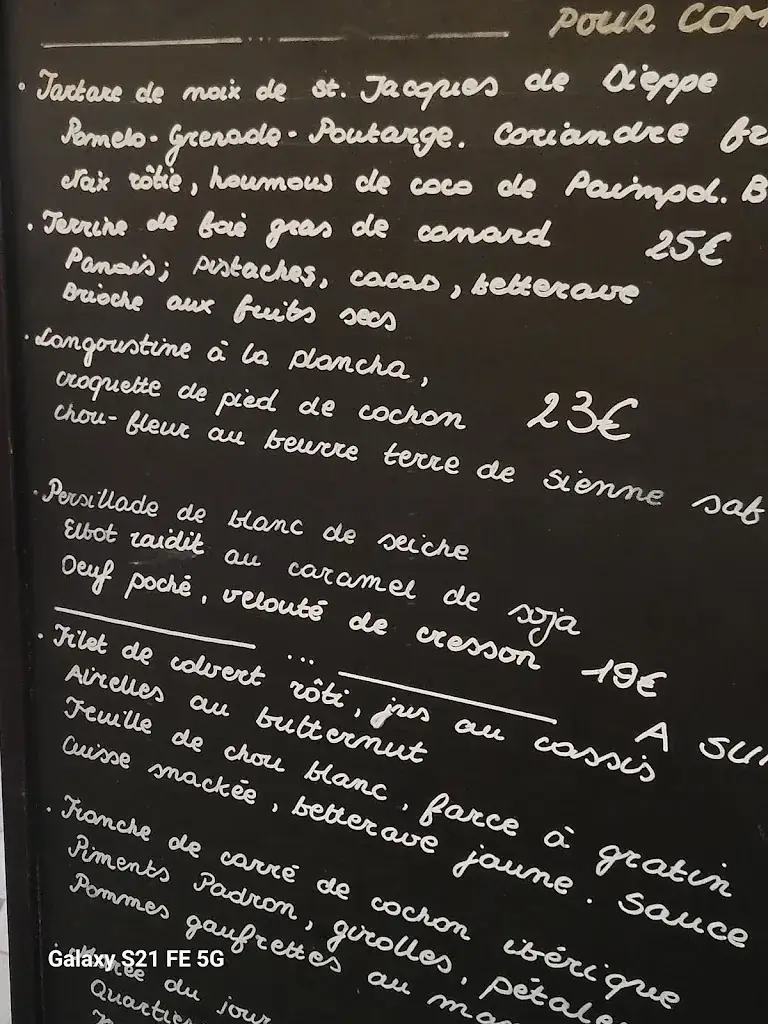 POUR COM
· Tartare de noix de st. Jacques de Dieppe
Pomelo - Grenade - Poutarge. Coriandre
Noix rôtie, houmous de coco de Paimpol. B
· Terrine de foie gras de canard 25€
Panais; pistaches, cacao, betterave
Brioche aux fruits secs
· Langoustine à la plancha,
croquette de pied de cochon 23€
chou-fleur au beurre terre de sienne
· Persillade de blanc de seiche
Elbot raidit au caramel de soja
Oeuf poché, velouté de cresson 19€
...
A SUI
· Filet de colvert rôti, jus au cassis
Airelles au butternut
Feuille de chou blanc, farce à gratin
Cuisse snackée, betterave jaune. Sauce
· Tranche de carré de cochon ibérique
Piments Padron, girolles, pétale
Pommes gaufrettes au
du jour
Quartier
Galaxy S21 FE 5G